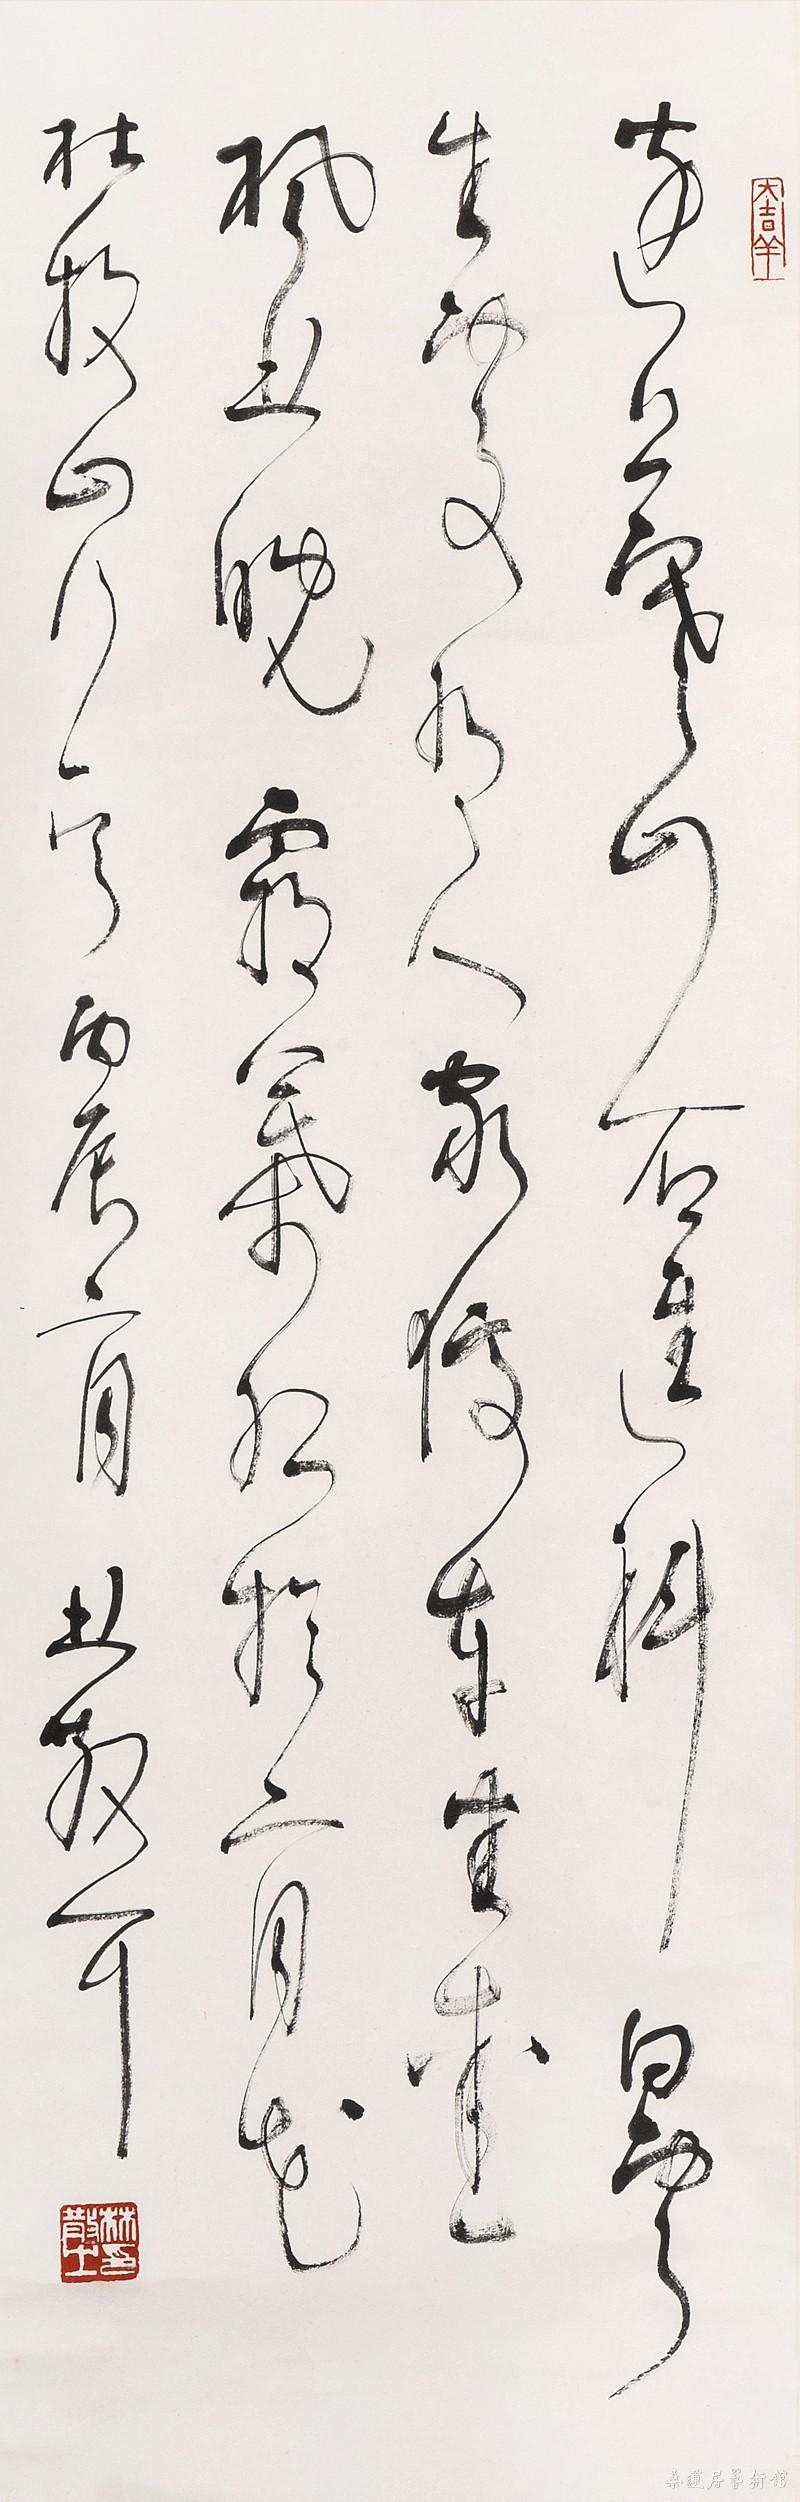 大吉羊
遠上寒山石徑斜白雲
生處有人家停車坐愛
楓林晚霜葉紅於二月花
杜牧山行一首丙辰二月林散耳
林散之印
桑蓮居藝術館